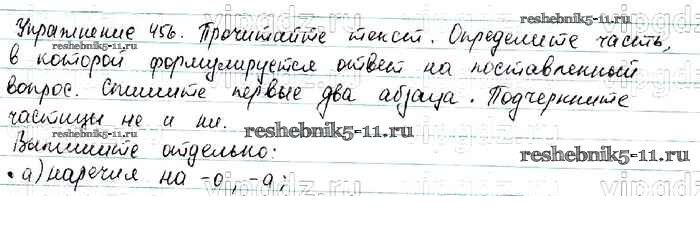 Упражнение 456. Прочитайте текст. Определите часть,
в которой формулируется ответ на поставленный
вопрос. Спишите первые два абзаца. Подчеркните
частицы не и ни.
Выпишите отдельно:
• а) наречия на -о, -а;
reshebnik5-11.ru
reshebnik5-11.ru
reshebnik5-11.ru
reshebnik5-11.ru
vipgdz.ru